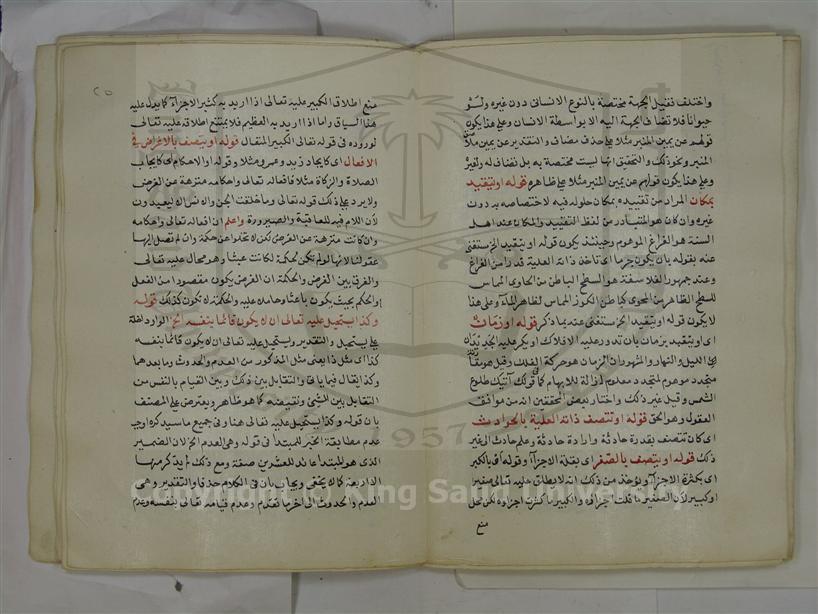 واختلف فقيل الجهة مختصة بالنوع الانسانى دون غيره ولو
حيوانا فلا تضاف الجهة اليه الا بواسطة الانسان وعلى هذا يكون
قولهم عن يمين المنبر مثلا على حذف مضاف والتقدير عن يمين ملاصق
المنبر ونحو ذلك والتحقيق انها ليست مختصة به بل تضاف له ولغيره
وعلى هذا يكون قولهم عن يمين المنبر مثلا على ظاهره قوله او يتقيد
بمكان المراد من تقييده بمكان حلوله فيه لاختصاصه به دون
غيره وان كان هو المتبادر من لفظ التقييد والمكان عند اهل
السنة هو الفراغ الموهوم وحينئذ يكون قوله او يتقيد الخ مستغنى
عنه بقوله بان يكون جرما اى تاخذ ذاته العلية قدرا من الفراغ
وعند جمهور الفلاسفة هو السطح الباطن من الحاوى المماس
للسطح الظاهر من المحوى كباطن الكوز المماس لظاهر الماء وعلى هذا
لا يكون قوله او يتقيد الخ مستغنى عنه بما ذكر قوله او زمان
اى او يتقيد بزمان بان تدور عليه الافلاك او يكر عليه الجديدان
اى الليل والنهار والمشهور ان الزمان هو حركة الفلك وقيل هو مقارنة
متجدد موهوم لمتجدد معلوم ازالة للابهام كما فى قولك آتيك طلوع
الشمس وقيل غير ذلك واختار بعض المحققين انه من مواقف
العقول وهو الحق قوله او تتصف ذاته العلية بالحوادث
اى كان تتصف بقدرة حادثة وارادة حادثة وعلم حادث الى غير
ذلك قوله او يتصف بالصغر اى بقلة الاجزاء وقوله او بالكبر
اى بكثرة الاجزاء ويؤخذ من ذلك انه لا يطلق عليه تعالى صغير
او كبير لان الصغير ما قلت اجزاؤه والكبير ما كثرت اجزاؤه لكن محل
منع
منع اطلاق الكبير عليه تعالى اذا اريد به كثير الاجزاء كما يدل عليه
هذا السياق واما اذا اريد به العظيم فلا يمتنع اطلاقه عليه تعالى
لوروده فى قوله تعالى الكبير المتعال قوله او يتصف بالاغراض فى
الافعال اى كايجاد زيد وعمرو مثلا وقوله او الاحكام اى كايجاب
الصلاة والزكاة مثلا فافعاله تعالى واحكامه منزهة عن الغرض
ولا يرد على ذلك قوله تعالى وما خلقت الجن والانس الا ليعبدون
لان اللام فيه للعاقبة والصيرورة واعلم ان افعاله تعالى واحكامه
وان كانت منزهة عن الغرض لكن لا تخلو عن حكمة وان لم تصل اليها
عقولنا لانها لو لم تكن لحكمة لكانت عبثا وهو محال عليه تعالى
والفرق بين الغرض والحكمة ان الغرض يكون مقصودا من الفعل
او الحكم بحيث يكون باعثا وحاملا عليه والحكمة لا تكون كذلك قوله
وكذا يستحيل عليه تعالى ان لا يكون قائما بنفسه الخ الواو داخلة
على يستحيل والتقدير ويستحيل عليه تعالى ان لا يكون قائما بنفسه
كذا اى مثل ذا يعنى مثل المذكور من العدم والحدوث وما بعدهما
وكذا يقال فيما ياتى والتقابل بين ذلك وبين القيام بالنفس من
التقابل بين الشئ ونقيضه كما هو ظاهر ويعترض على المصنف
بان قوله وكذا يستحيل عليه تعالى هنا وفى جميع ما سيذكره اوجب
عدم مطابقة الخبر للمبتدا فى قوله وهى العدم الخ لان الضمير
الذى هو المبتدا عائد للعشرين صفة ومع ذلك لم يذكر منها
الا اربعة كما لا يخفى ويجاب بان فى الكلام حذفا والتقدير وهى
العدم والحدوث الى آخر ما تقدم وعدم قيامه تعالى بنفسه وعدم
Copyright © King Saud University
1957